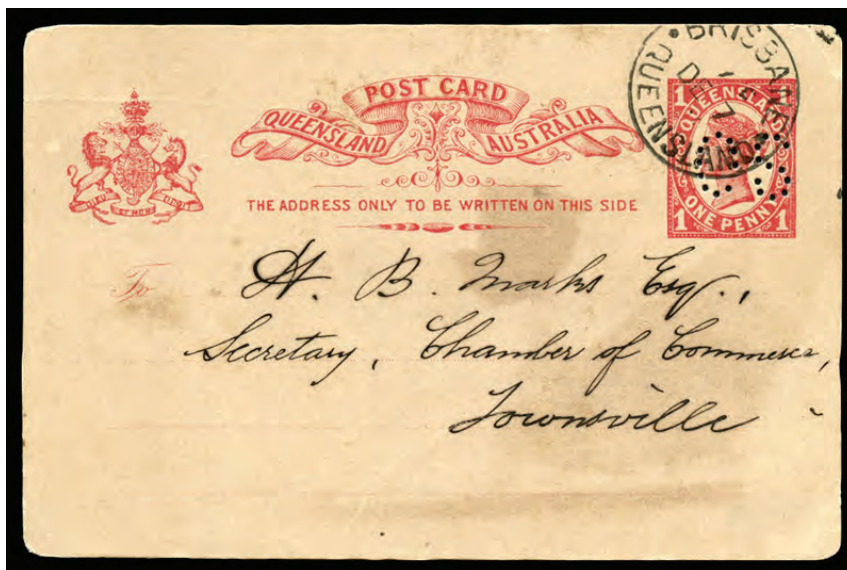 POST CARD
QUEENSLAND AUSTRALIA
THE ADDRESS ONLY TO BE WRITTEN ON THIS SIDE
BRISBANE
DE 7
QUEENSLAND
1 1
QUEENSLAND
ONE PENNY
1 1
DIEU ET MON DROIT
To
H. B. Marks Esq.,
Secretary, Chamber of Commerce,
Townsville